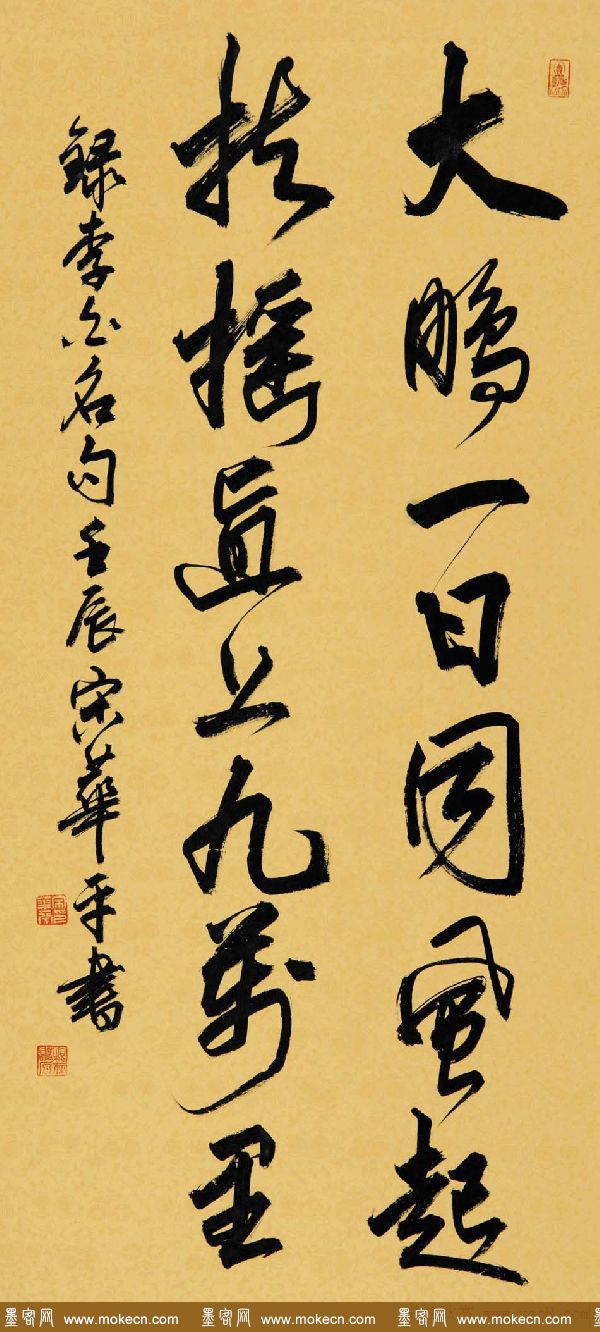 大鹏一日同风起
扶摇直上九万里
録李白名句壬辰宋華平書
墨客网 www.mokecn.com 墨客网 www.mokecn.com 墨客网 www.mokecn.com